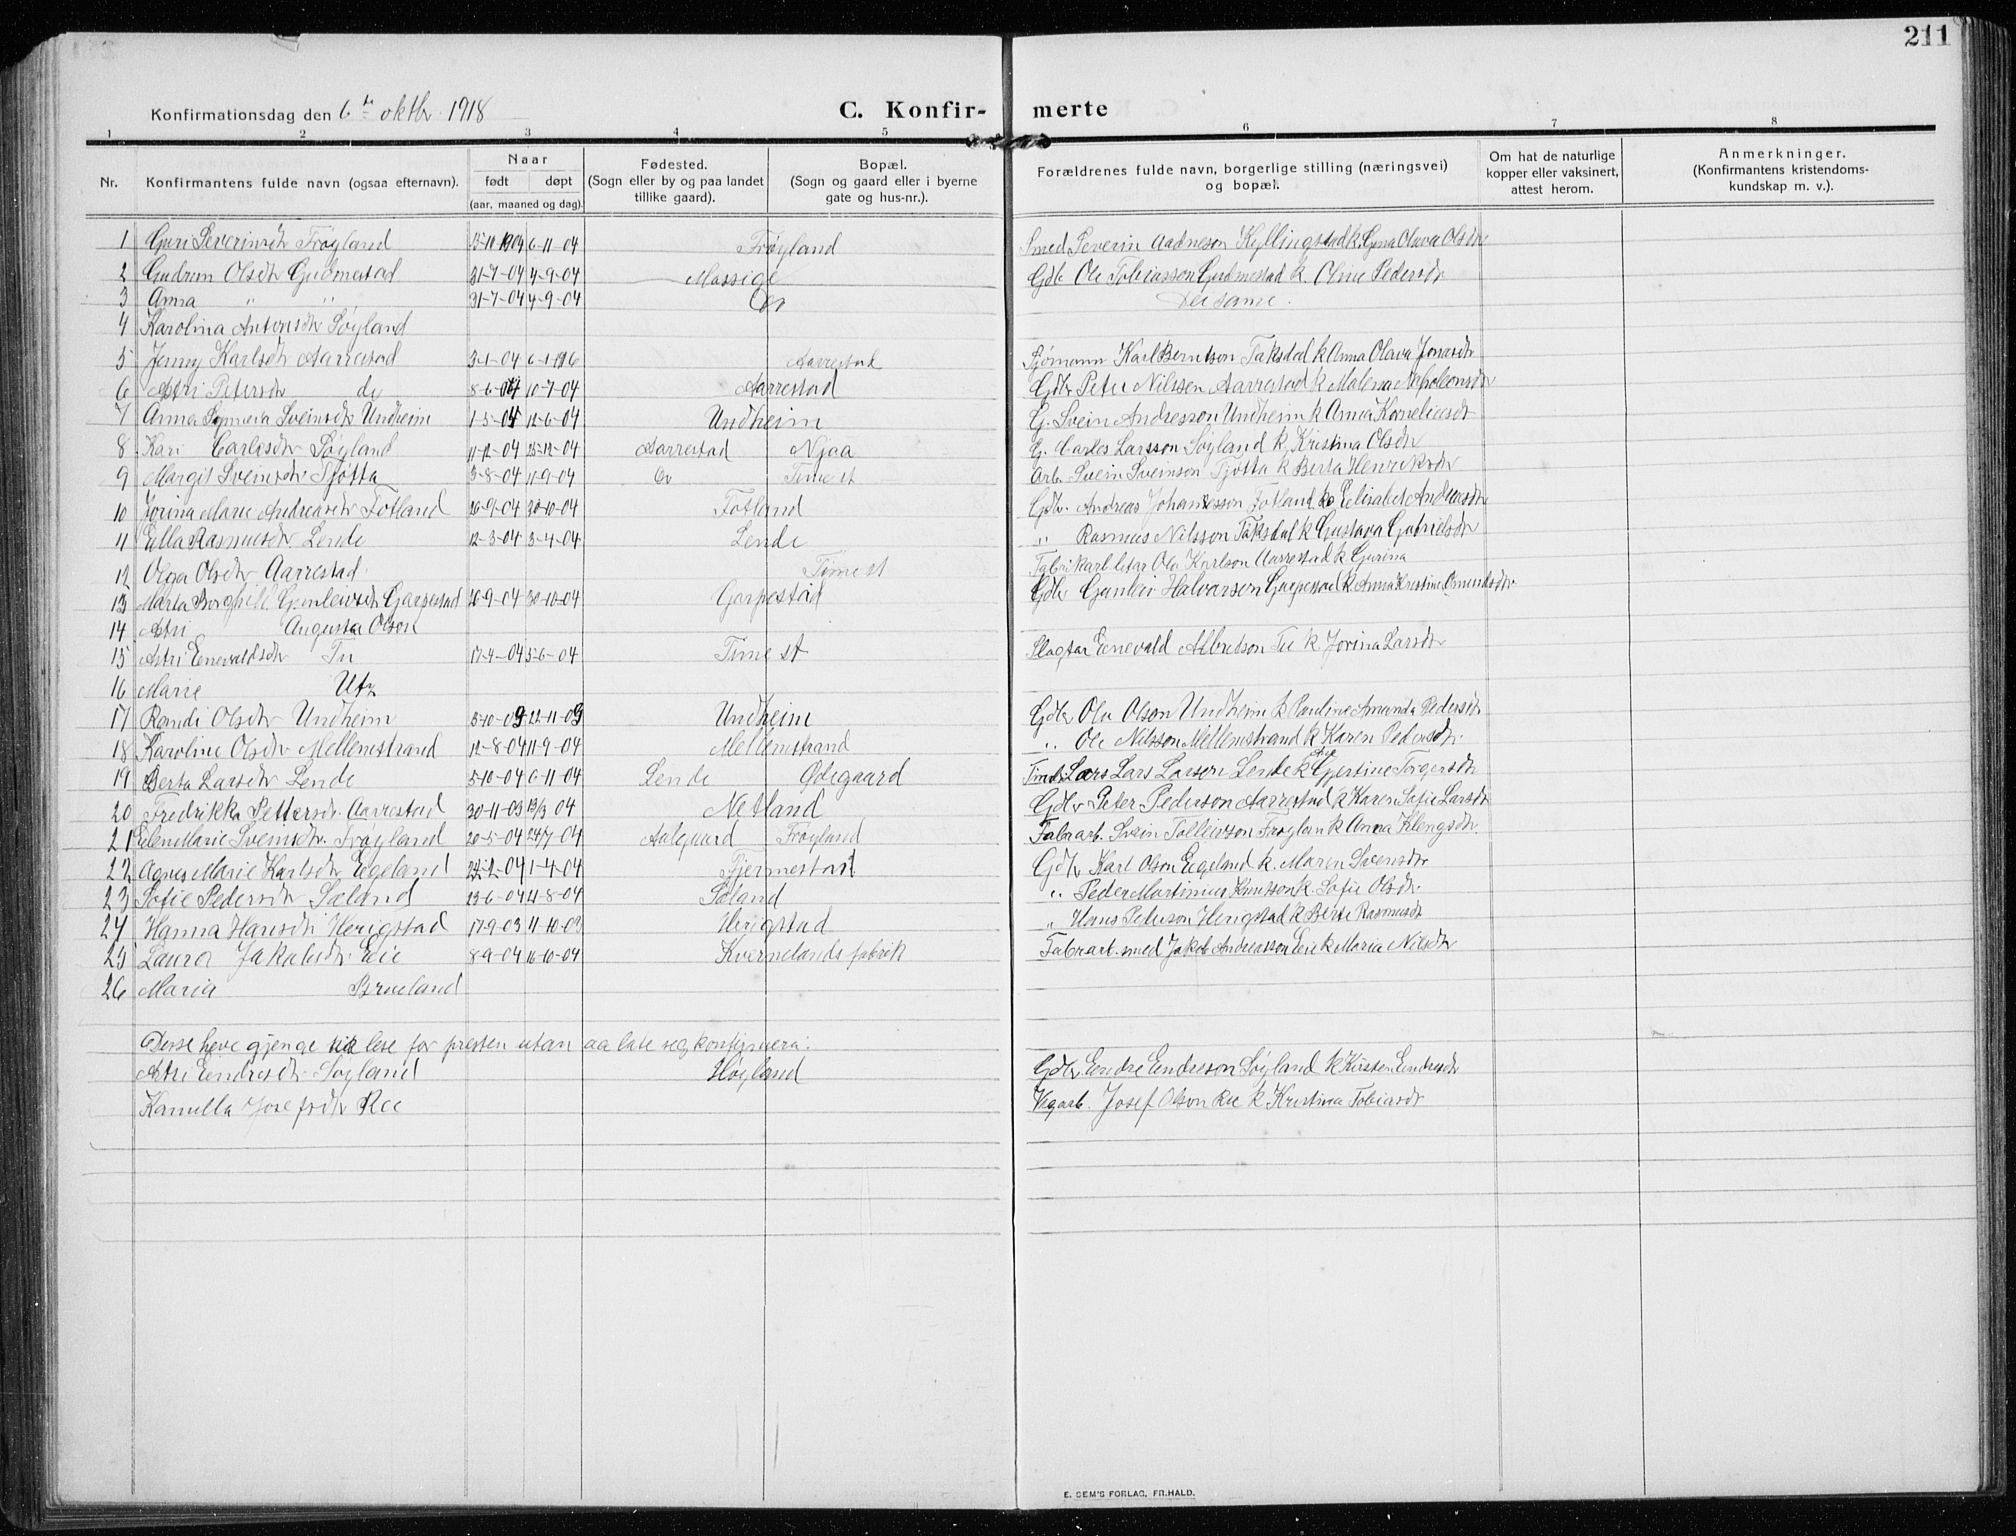 211
Konfirmationsdag den 6te oktbr 1918
C. Konfir- merte
1 2 3 4 5 6 7 8
Nr. Konfirmantens fulde navn (ogsaa efternavn). Naar født døpt (aar, maaned og dag). Fødested. (Sogn eller by og paa landet tillike gaard). Bopæl. (Sogn og gaard eller i byerne gate og hus-nr.). Forældrenes fulde navn, borgerlige stilling (næringsvei) og bopæl. Om hat de naturlige kopper eller vaksinert, attest herom. Anmerkninger. (Konfirmantens kristendoms- kundskap m. v.).
1 Guri Severinsdtr Frøyland 6-11-04 Frøyland Smed Severin Aadneson Kyllingstad k. Gina Olava Olsdtr
2 Gudrun Olsdtr Gudmestad 31-7-04 4-9-04 Massige Gdb. Ole Tobiasson Gudmestad k. Oline Pedersdtr
3 Anna " " 31-7-04 4-9-04 Dei same.
4 Karolina Antonsdtr Søyland
5 Jenny Karlsdtr Aarrestad 3-1-04 Aarrestad Sjømann Karl Berntson Taksdal k Anna Olava Jonasdtr
6 Astri Petersdtr do 8-6-04 10-7-04 Aarrestad Gdb Peter Nilssen Aarrestad k Malena Napoleonsdtr
7 Anna Sveinsdtr Undheim 1-5-04 12-6-04 Undheim G. Svein Andresson Undheim k Anna Korneliusdtr
8 Kari Carlesdtr Søyland 11-12-04 25-12-04 Aarrestad Njaa G. Carles Larsson Søyland k. Kristina Olsdtr
9 Margit Sveinsdtr Tjøtta 3-8-04 11-9-04 Time st Arb. Svein Sveinson Tjøtta k Berta Henriksdtr
10 Jorina Marie Andreasdtr Fotland 26-9-04 30-10-04 Fotland Gdb. Andreas Johannesson Fotland k Elisabet Andreasdtr
11 Ella Rasmusdtr Lende 12-3-04 3-4-04 Lende " Rasmus Nilsson Taksdal k Gustava Gabrielsdtr
12 Olga Olsdtr Aarrestad. Time st Ola Karlson Aarrestad k Gurina
13 Marta Borghild Gunleivsdtr Garpestad 26-9-04 30-10-04 Garpestad Gdb Gunleiv Halvorsen Garpestad k Anna Kristine Omundsdtr.
14 Astri Augusta Olson
15 Astri Enevaldsdtr Tu 17-4-04 5-6-04 Time st Slagtar Enevald Albretson Tu k. Jorina Larsdtr
16 Marie
17 Randi Olsdtr Undheim 3-10-03 22-11-03 Undheim Gdb Ola Olson Undheim k Pauline Amanda Pedersdtr
18 Karoline Olsdtr Mellemstrand 12-8-04 11-9-04 Mellemstrand " Ole Nilsson Mellemstrand k Karen Pedersdtr.
19 Berta Larsdtr Lende 5-10-04 6-11-04 Lende Ødegaard Lars Larson Lende k Gjertine Torgersdtr
20 Fredrikka Pettersdtr. Aarrestad 30-11-03 13/3 04 Netland Gdb Peter Pederson Aarrestad k Karen Sofie Larsdtr
21 Elen Marie Sveinsdtr Frøyland 20-5-04 24/7-04 Aalgaard Frøyland Fabr. arb. Svein Tolleivson Frøyland k Anna Klengsdtr
22 Agnes Marie Karlsdtr Egeland 1-4-04 Fjermestad Gdb Karl Olson Eigeland k. Maren Svensdtr
23 Sofie Pedersdtr Sæland 23-6-04 21-8-04 Sæland " Peder Martinius Knutson k. Sofie Olsdtr
24 Hanna Hansdtr Herigstad 17-9-03 11-10-03 Herigstad " Hans Pederson Herigstad k Berte Rasmusdtr
25 Laura Jakobsdtr Eie 8-9-04 16-10-04 Kvernelands fabrik Fabr arb. smed Jakob Andreasson Eie k Maria Nilsdtr
26 Maria Brueland
Desse heve gjenge lese for presten utan aa late seg konfirmera:
Astri Endresdtr Søyland Høyland Gdb Endre Endreson Søyland k Kirsten Endresdtr
Kamilla Josefsdtr Ree Vegarb. Josef Olson Ree k Kristina Tobiasdtr
E. SEM'S FORLAG, FR.HALD.